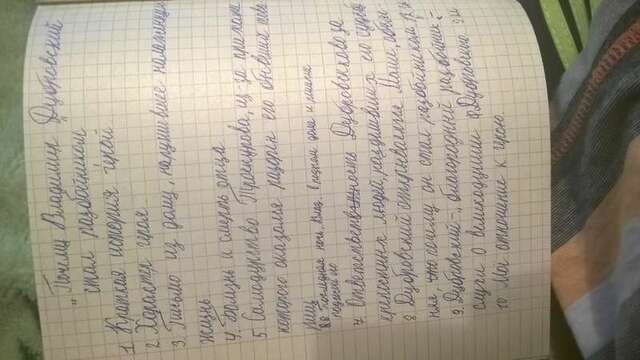 "Почему Владимир Дубровский
стал разбойником"
1 Краткая история герой
2. Характер героя
3. Письмо из дому, нарушившее налаженную
жизнь
4. Болезнь и смерть отца
5. Самодурство Троекурова, из-за прихоти
которого оказался разорен его бывший това
рищ
6. Последняя ночь Влад. в родном доме и решение
поджечь его
7. Ответственность Дубровского за
крепостных людей, разделивших его судьбу
8. Дубровский открывается Маше, объяс
няя, почему он стал разбойником
9. Дубровский - благородный разбойник
случи о великодушии Дубровского
10. Мое отношение к герою.